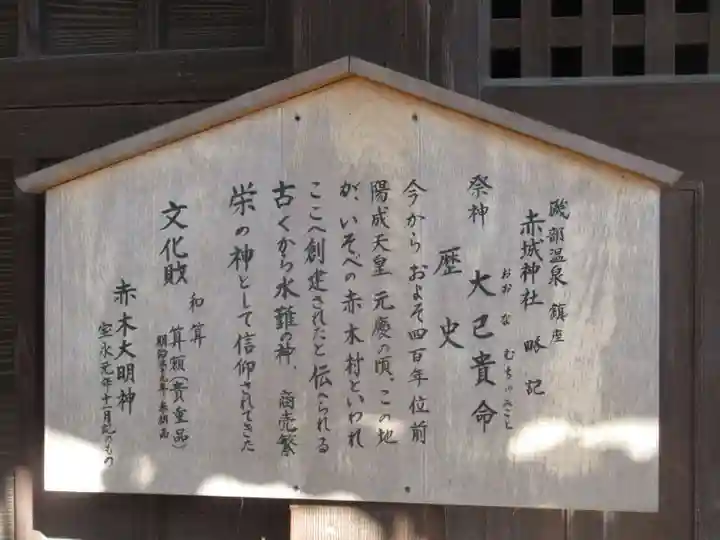 磯部温泉 鎮座
赤城神社 略記
祭神 大己貴命
おお な むち の みこと
歴史
今から およそ四百年位前
陽成天皇 元慶の頃、この地
が、いそべの赤木村といわれ
ここへ創建されたと伝へられる
古くから水難の神、商売繁
栄の神として信仰されてきた
文化財 和算
算額(貴重品)
明治 元年 奉納
赤木大明神
宝永元年十一月記のもの